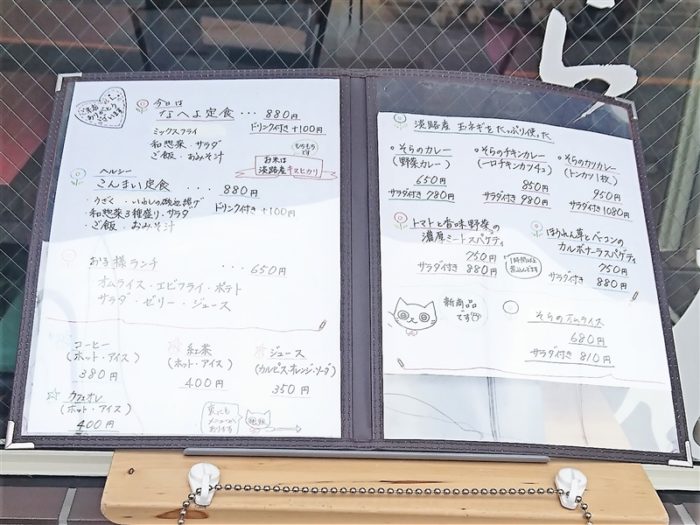 ご来店
ありがとう
ございます
今日は
なへよ定食 ・・・ 880円
ドリンク付き +100円
ミックスフライ
和惣菜・サラダ
ご飯・おみそ汁
もちもち
です
お米は
淡路産キヌヒカリ
ヘルシー
さんまい定食 ・・・・ 880円
ドリンク付き +100円
・うざく・いわしの梅五揚げ
・和惣菜3種盛り・サラダ
・ご飯・おみそ汁
お子様ランチ ・・・ 650円
オムライス・エビフライ・ポテト
サラダ・ゼリー・ジュース
コーヒー
(ホット・アイス)
380円
紅茶
(ホット・アイス)
400円
ジュース
(カルピス・オレンジ・ソーダ)
350円
カフェオレ
(ホット・アイス)
400円
裏にも
メニューが
あります
ら
淡路産 玉ネギをたっぷり使った
・そらのカレー
(野菜カレー)
650円
サラダ付き 780円
・そらのチキンカレー
(一口チキンカツ4コ)
850円
サラダ付き 980円
・そらのカツカレー
(トンカツ1枚)
950円
サラダ付き 1080円
トマトと香味野菜の
濃厚ミートスパゲティ
750円
サラダ付き 880円
1時間以上
煮込んでます
ほうれん草とベーコンの
カルボナーラスパゲティ
750円
サラダ付き 880円
新商品
です
そらのオムライス
680円
サラダ付き 810円